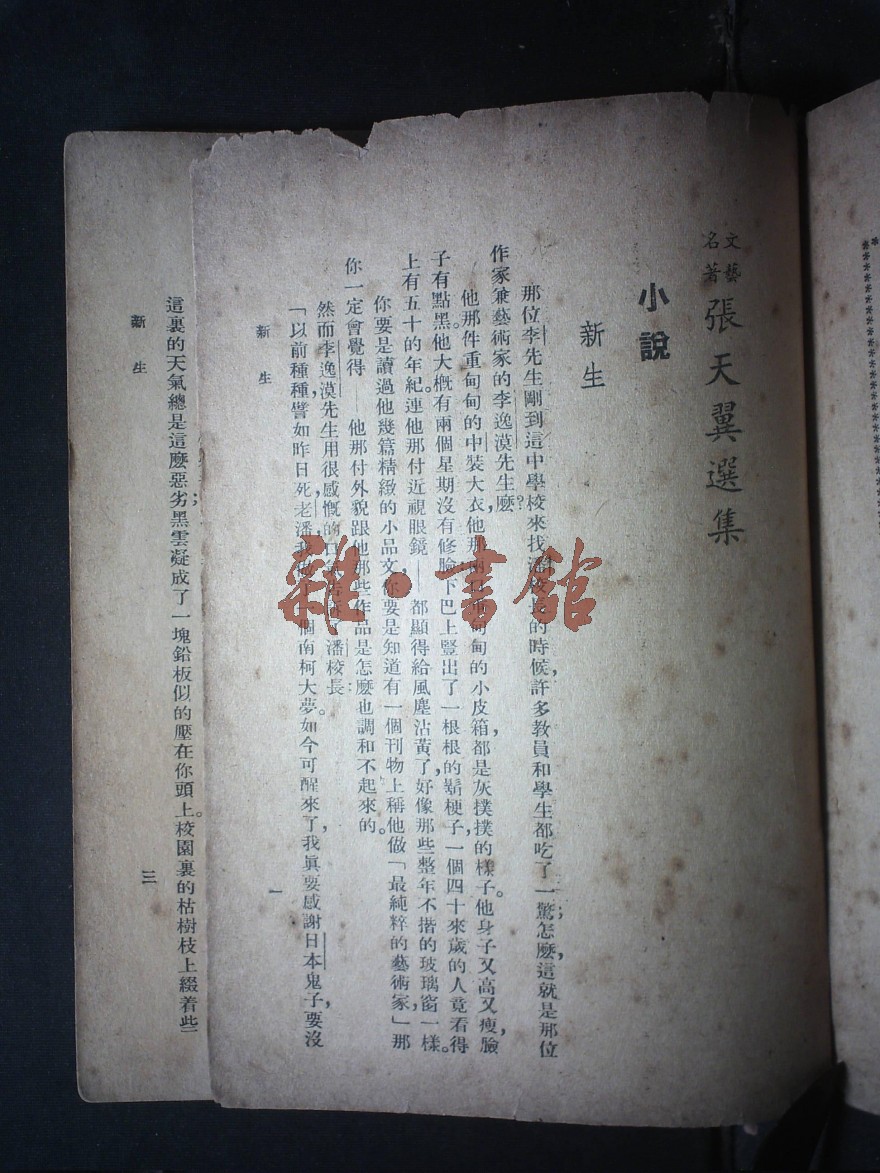 文藝
名著
張天翼選集
小說
新生
那位李先生剛到這中學校來找潘校長的時候，許多教員和學生都吃了一驚：怎麼，這就是那位
作家兼藝術家的李逸漠先生麼？
他那件重甸甸的中裝大衣，他那兩口重甸甸的小皮箱，都是灰撲撲的樣子。他身子又高又瘦，臉
子有點黑。他大概有兩個星期沒有修臉，下巴上豎出了一根根的鬍梗子，一個四十來歲的人竟看得
上有五十的年紀。連他那付近視眼鏡——都顯得給風塵沾黃了，好像那些整年不揩的玻璃窗一樣。
你要是讀過他幾篇精緻的小品文，你要是知道有一個刊物上稱他做「最純粹的藝術家，」那
你一定會覺得——他那付外貌跟他那些作品是怎麼也調和不起來的。
然而李逸漠先生用很感慨的口潘校長：
「以前種種，譬如昨日死，老潘，我個南柯大夢。如今可醒來了，我眞要感謝日本鬼子，要沒
新生
一
這裏的天氣總是這麼惡劣：黑雲凝成了一塊鉛板似的壓在你頭上。校園裏的枯樹枝上綴着些
新生
三
雜·書館